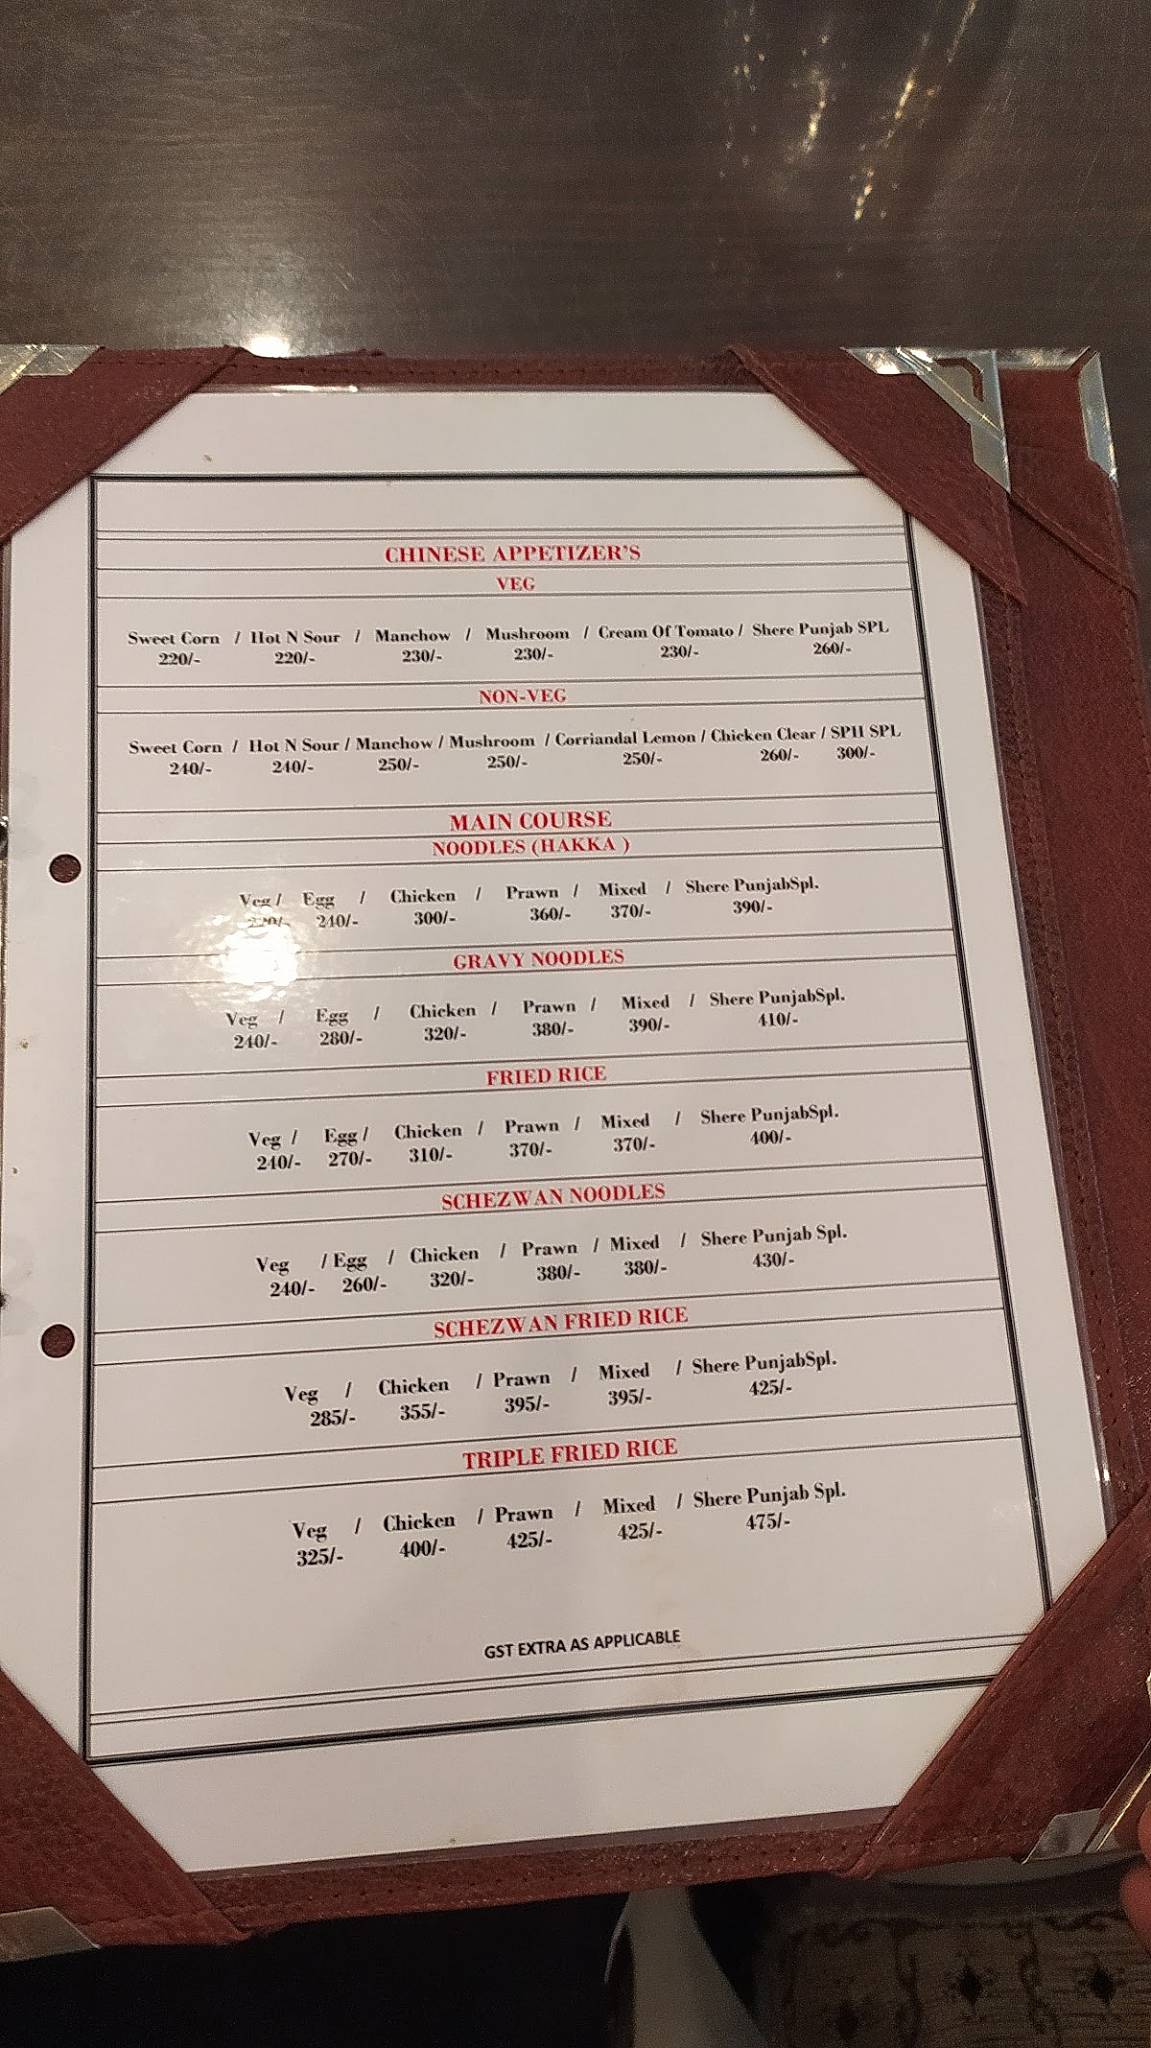 CHINESE APPETIZER'S
VEG
Sweet Corn / Hot N Sour / Manchow / Mushroom / Cream Of Tomato / Shere Punjab SPL
220/- 220/- 230/- 230/- 230/- 260/-
NON-VEG
Sweet Corn / Hot N Sour / Manchow / Mushroom / Corriandal Lemon / Chicken Clear / SPH SPL
240/- 240/- 250/- 250/- 250/- 260/- 300/-
MAIN COURSE
NOODLES (HAKKA )
Veg / Egg / Chicken / Prawn / Mixed / Shere PunjabSpl.
240/- 300/- 360/- 370/- 390/-
GRAVY NOODLES
Veg / Egg / Chicken / Prawn / Mixed / Shere PunjabSpl.
240/- 280/- 320/- 380/- 390/- 410/-
FRIED RICE
Veg / Egg / Chicken / Prawn / Mixed / Shere PunjabSpl.
240/- 270/- 310/- 370/- 370/- 400/-
SCHEZWAN NOODLES
Veg / Egg / Chicken / Prawn / Mixed / Shere Punjab Spl.
240/- 260/- 320/- 380/- 380/- 430/-
SCHEZWAN FRIED RICE
Veg / Chicken / Prawn / Mixed / Shere PunjabSpl.
285/- 355/- 395/- 395/- 425/-
TRIPLE FRIED RICE
Veg / Chicken / Prawn / Mixed / Shere Punjab Spl.
325/- 400/- 425/- 425/- 475/-
GST EXTRA AS APPLICABLE